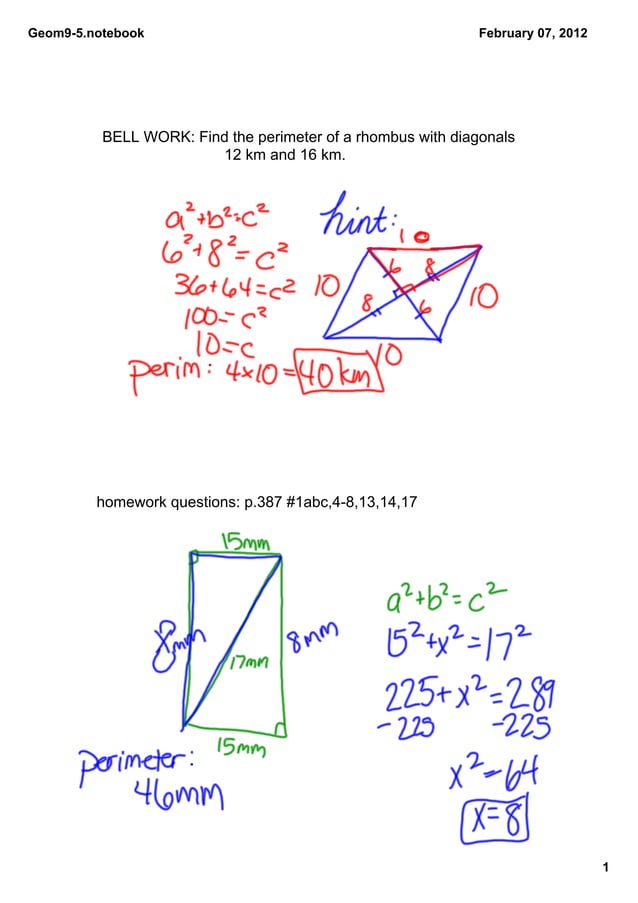 Geom9-5.notebook
February 07, 2012
BELL WORK: Find the perimeter of a rhombus with diagonals
12 km and 16 km.
a²+b²=c²
6²+8²=c²
36+64=c²
100=c²
10=c
perim: 4×10=40km
hint:
10
10
6
8
8
6
10
10
homework questions: p.387 #1abc,4-8,13,14,17
15mm
8mm
17mm
15mm
perimeter:
46mm
a²+b²=c²
15²+x²=17²
225+x²=289
-225 -225
x²=64
x=8
1